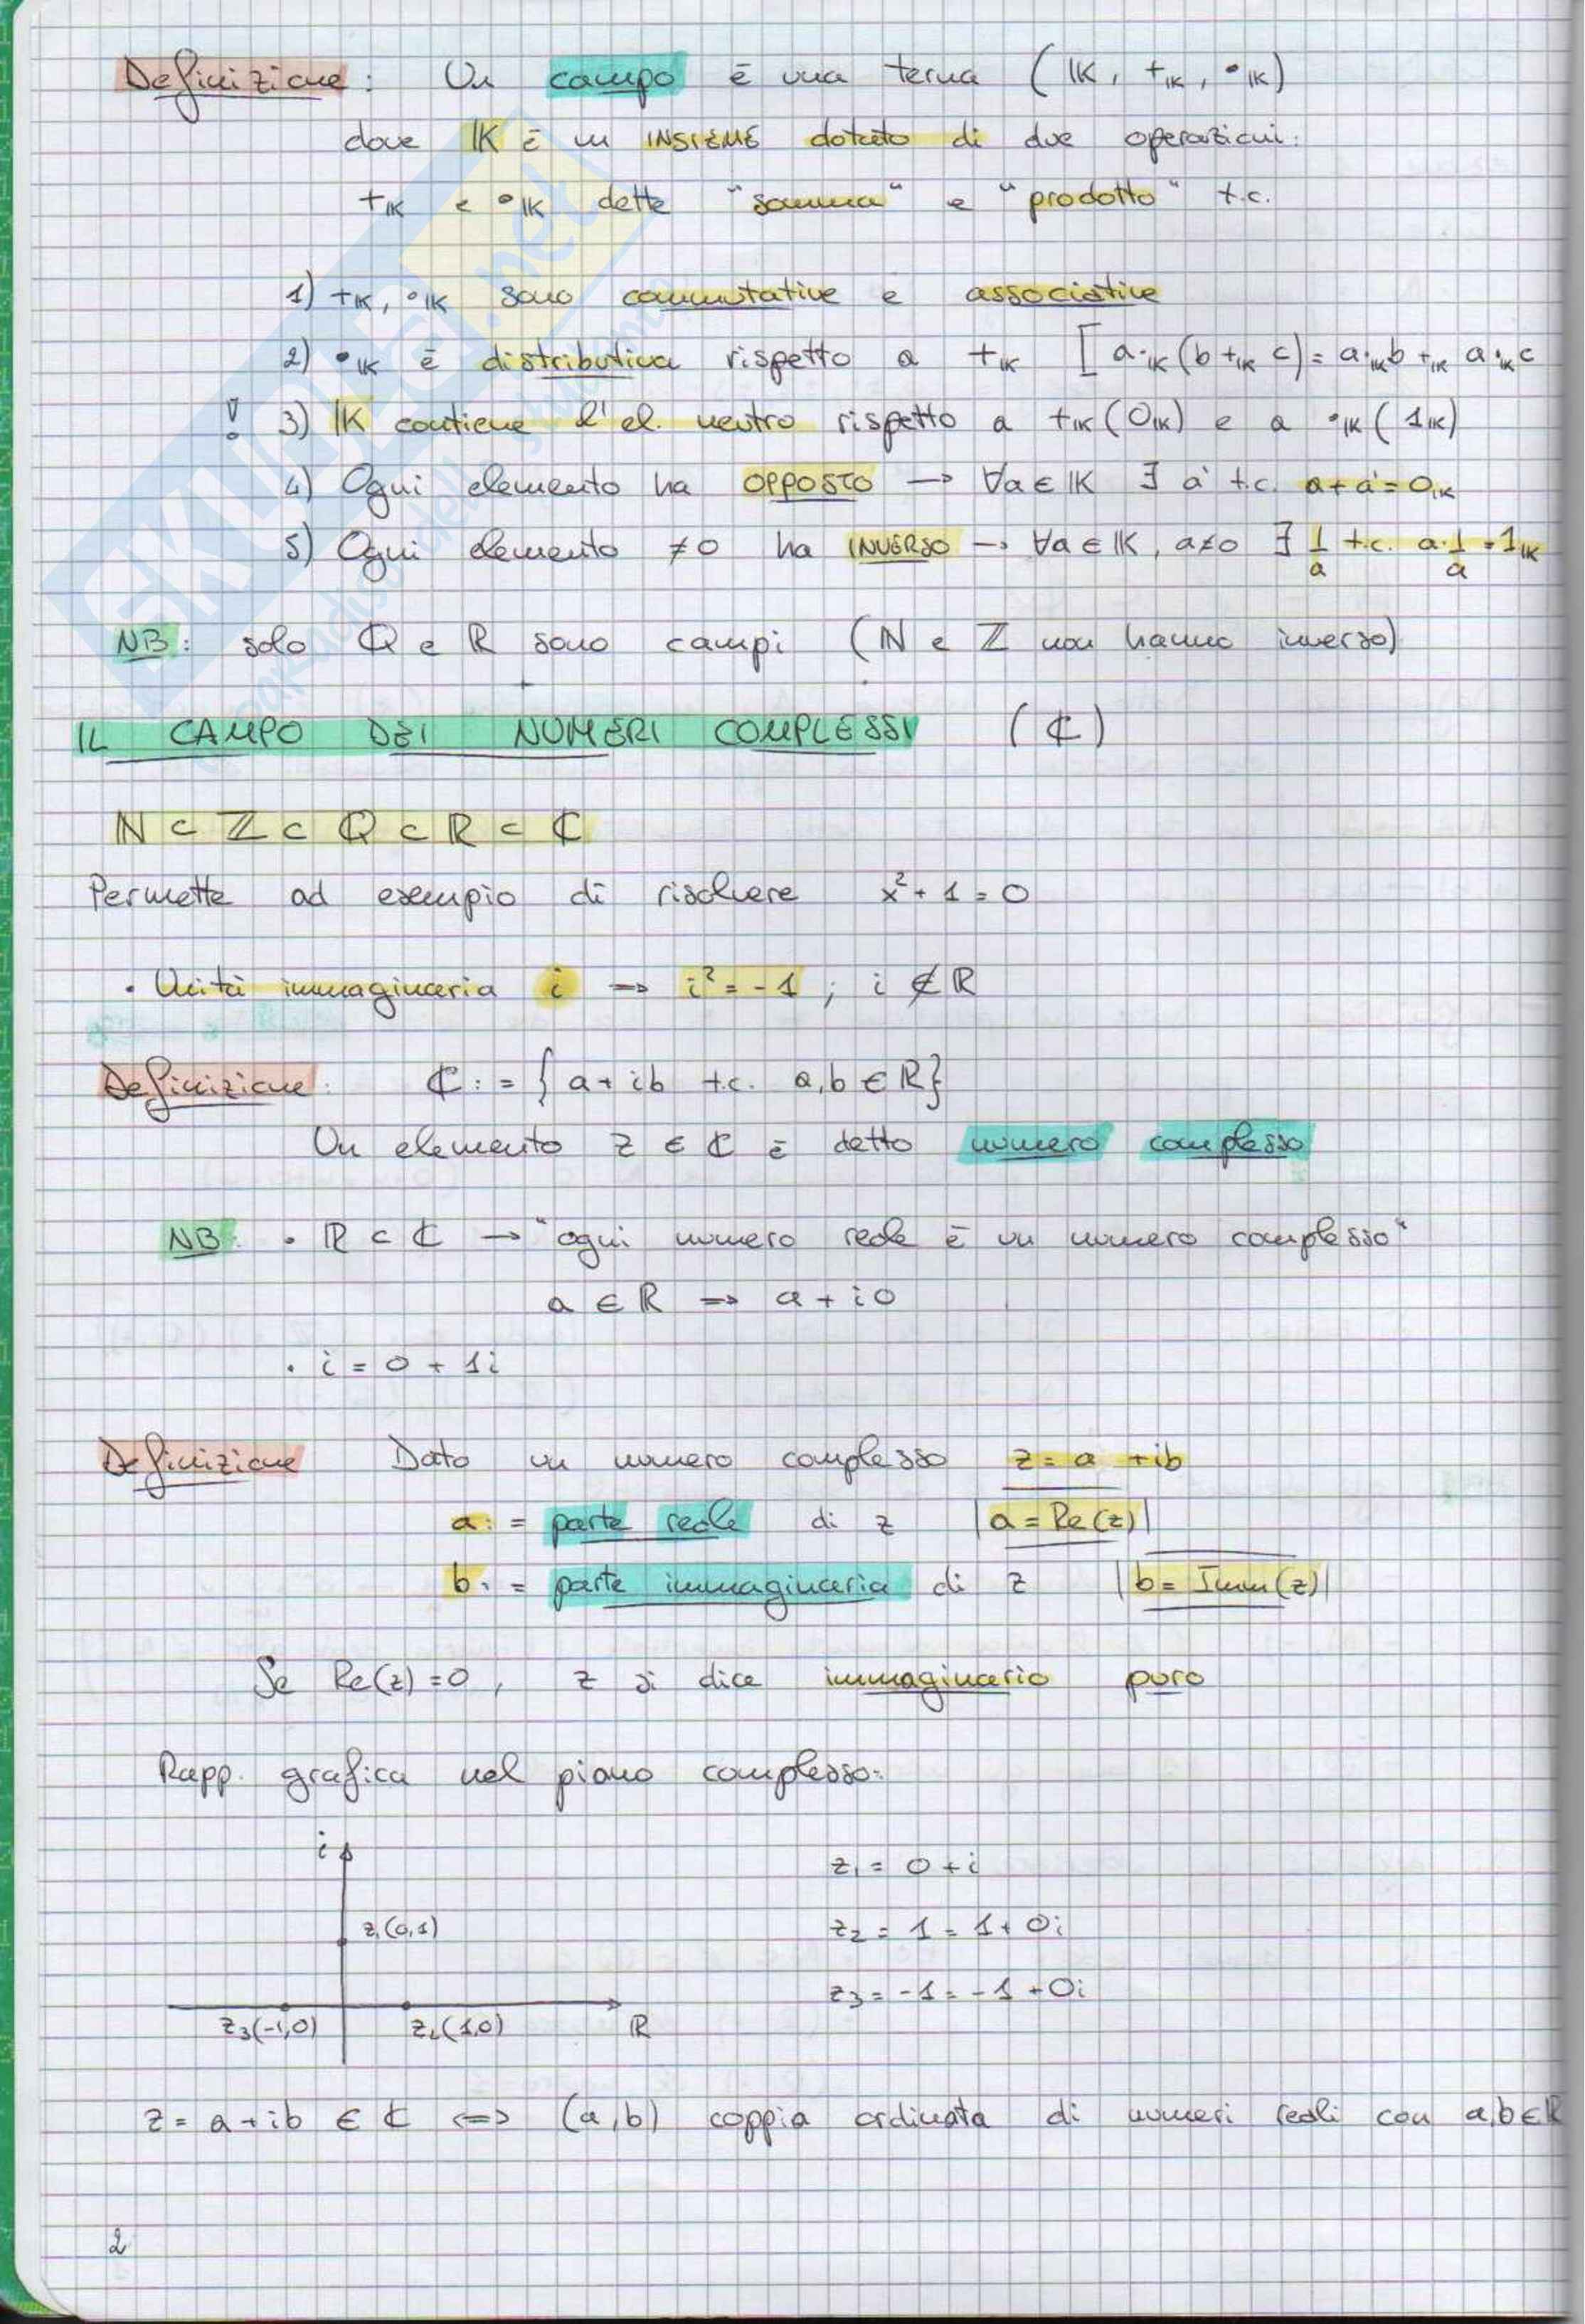 Definizione: Un campo è una terna (K, +K, •K)
dove K è un INSIEME dotato di due operazioni:
+K e •K dette "somma" e "prodotto" t.c.
1) +K, •K sono commutative e associative
2) •K è distributiva rispetto a +K [a·K(b +K c) = a·Kb +K a·Kc
! 3) K contiene l'el. neutro rispetto a +K (0K) e a •K (1K)
4) Ogni elemento ha OPPOSTO → ∀a ∈ K ∃ a' t.c. a + a' = 0K
5) Ogni elemento ≠0 ha INVERSO → ∀a ∈ K, a≠0 ∃ 1/a t.c. a·1/a = 1K
NB: solo ℚ e ℝ sono campi (ℕ e ℤ non hanno inverso)
IL CAMPO DEI NUMERI COMPLESSI (ℂ)
ℕ ⊂ ℤ ⊂ ℚ ⊂ ℝ ⊂ ℂ
Permette ad esempio di risolvere x² + 1 = 0
• Unità immaginaria i ⇒ i² = -1 ; i ∉ ℝ
Definizione: ℂ := { a + ib t.c. a,b ∈ ℝ}
Un elemento z ∈ ℂ è detto numero complesso
NB: • ℝ ⊂ ℂ → "ogni numero reale è un numero complesso"
a ∈ ℝ ⇒ a + i0
• i = 0 + 1i
Definizione Dato un numero complesso z = a + ib
a := parte reale di z |a = Re(z)|
b := parte immaginaria di z |b = Imm(z)|
Se Re(z) = 0, z si dice immaginario puro
Rapp. grafica nel piano complesso:
i
z₁ = 0 + i
z₁(0,1)
z₂ = 1 = 1 + 0i
z₃ = -1 = -1 + 0i
z₃(-1,0) z₂(1,0) ℝ
z = a + ib ∈ ℂ ⇔ (a,b) coppia ordinata di numeri reali con a,b ∈ ℝ
2
SKUOLA.net